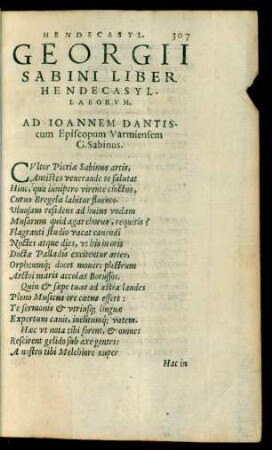 HENDECASYL. 307
GEORGII
SABINI LIBER
HENDECASYL-
LABORVM.
AD IOANNEM DANTIS-
cum Episcopum Varmiensem
G. Sabinus.
CVltor Pieriæ Sabinus artis,
Antistes venerande te salutat
Hinc, qua iunipero virente cinctus,
Curuo Bregela labitur fluento.
Vluosam residens ad huius vndam
Musarum quid agat chorus, requiris?
Flagranti studio vacat canendi
Noctes atque dies, vt his in oris
Doctæ Palladis excitentur artes,
Orpheumq; docet mouere plectrum
Arctoi maris accolas Borussos.
Quin & sæpe tuas ad astra laudes
Pleno Musicus ore cœtus effert:
Te sermonis & vtriusq; linguæ
Expertum canit, inclitumq; vatem.
Hæc vt nota tibi forent, & omnes
Rescirent gelido sub axe gentes:
A nostro tibi Melchiore nuper
Hac in